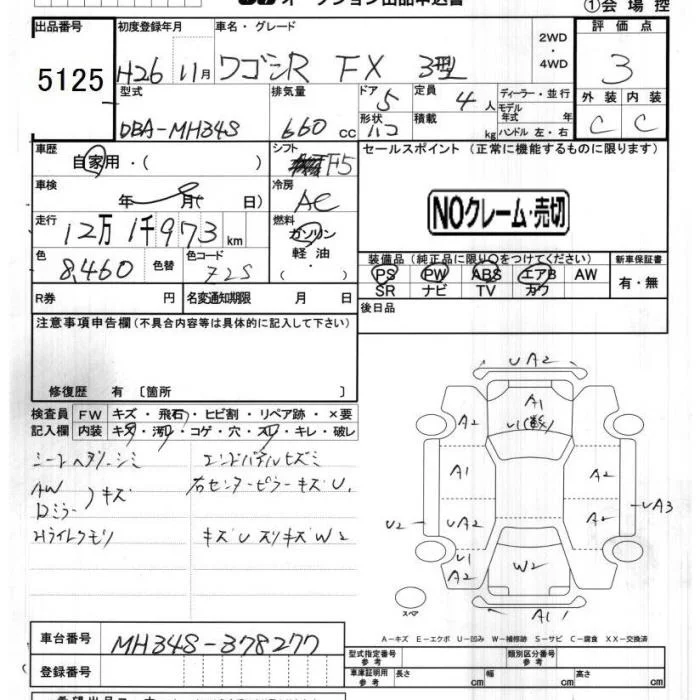 オークション出品申込書
①会場控
出品番号 初度登録年月 車名・グレード 2WD ・ 4WD 評価点
5125 H26 11月 ワゴンR FX 3型 3
型式 排気量 ドア 5 定員 4人 ディーラー・並行 外装 内装
モデル年式 年
DBA-MH34S 660cc 形状 ハコ 積載 kg ハンドル 左・右 C C
車歴 自家用・( ) シフト F5 セールスポイント (正常に機能するものに限ります)
車検 年 月( 日) 冷房 AC
NOクレーム・売切
走行 12万1千973km 燃料 ガソリン 軽油・( )
色 8,460 色替 色コード Z2S
装備品(純正品に限り○をつけてください) 新車保証書
PS PW ABS エアB AW 有・無
SR ナビ TV カワ
R券 円 名変通知期限 月 日 後日品
注意事項申告欄(不具合内容等は具体的に記入して下さい)
修復歴 有〔箇所 〕
検査員 FW キズ・飛石・ヒビ割・リペア跡・×要
記入欄 内装 キズ・汚れ・コゲ・穴・スレ・キレ・破レ
シートヘタリ・シミ エンドパネルヒズミ
AW
Dミラー )キズ 右センターピラーキズU1
Hライトクモリ キズU スリキズW2
UA2
A1
U1(数)
A2
A1
A2
A2
UA2
A2
UA3
U2
U1
A2
W2
A1
スペア
A-キズ E-エクボ U-凹み W-補修跡 S-サビ C-腐食 XX-交換済
車台番号 MH34S-378277
型式指定番号 参考 類別区分番号 参考
登録番号 車庫証明用 参考 長さ cm 幅 cm 高さ cm
希望出品コーナー